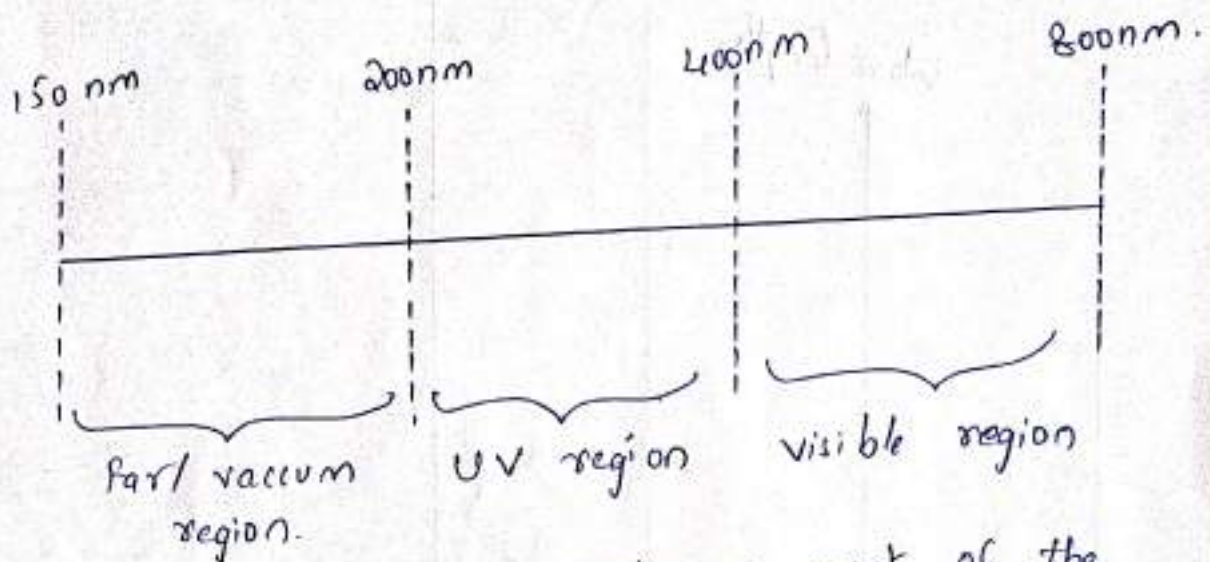 150 nm 200nm 400nm 800nm.
far/ vaccum UV region visible region
region.
of the